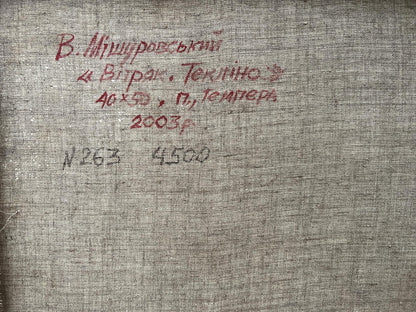 В. Мішуровський
"Вітряк. Текліно"
40х50, п., темпера
2003р.
N263 4500